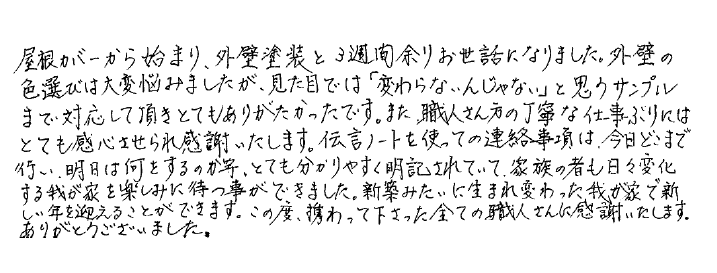 屋根カバーから始まり、外壁塗装と3週間余りお世話になりました。外壁の
色選びは大変悩みましたが、見た目では「変わらないんじゃない」と思うサンプル
まで対応して頂きとてもありがたかったです。また職人さん方の丁寧な仕事ぶりには
とても感心させられ感謝いたします。伝言ノートを使っての連絡事項は、今日どこまで
行い、明日は何をするのか等、とても分かりやすく明記されていて、家族の者も日々変化
する我が家を楽しみに待つ事ができました。新築みたいに生まれ変わった我が家で新
しい年を迎えることができます。この度、携わって下さった全ての職人さんに感謝いたします。
ありがとうございました。